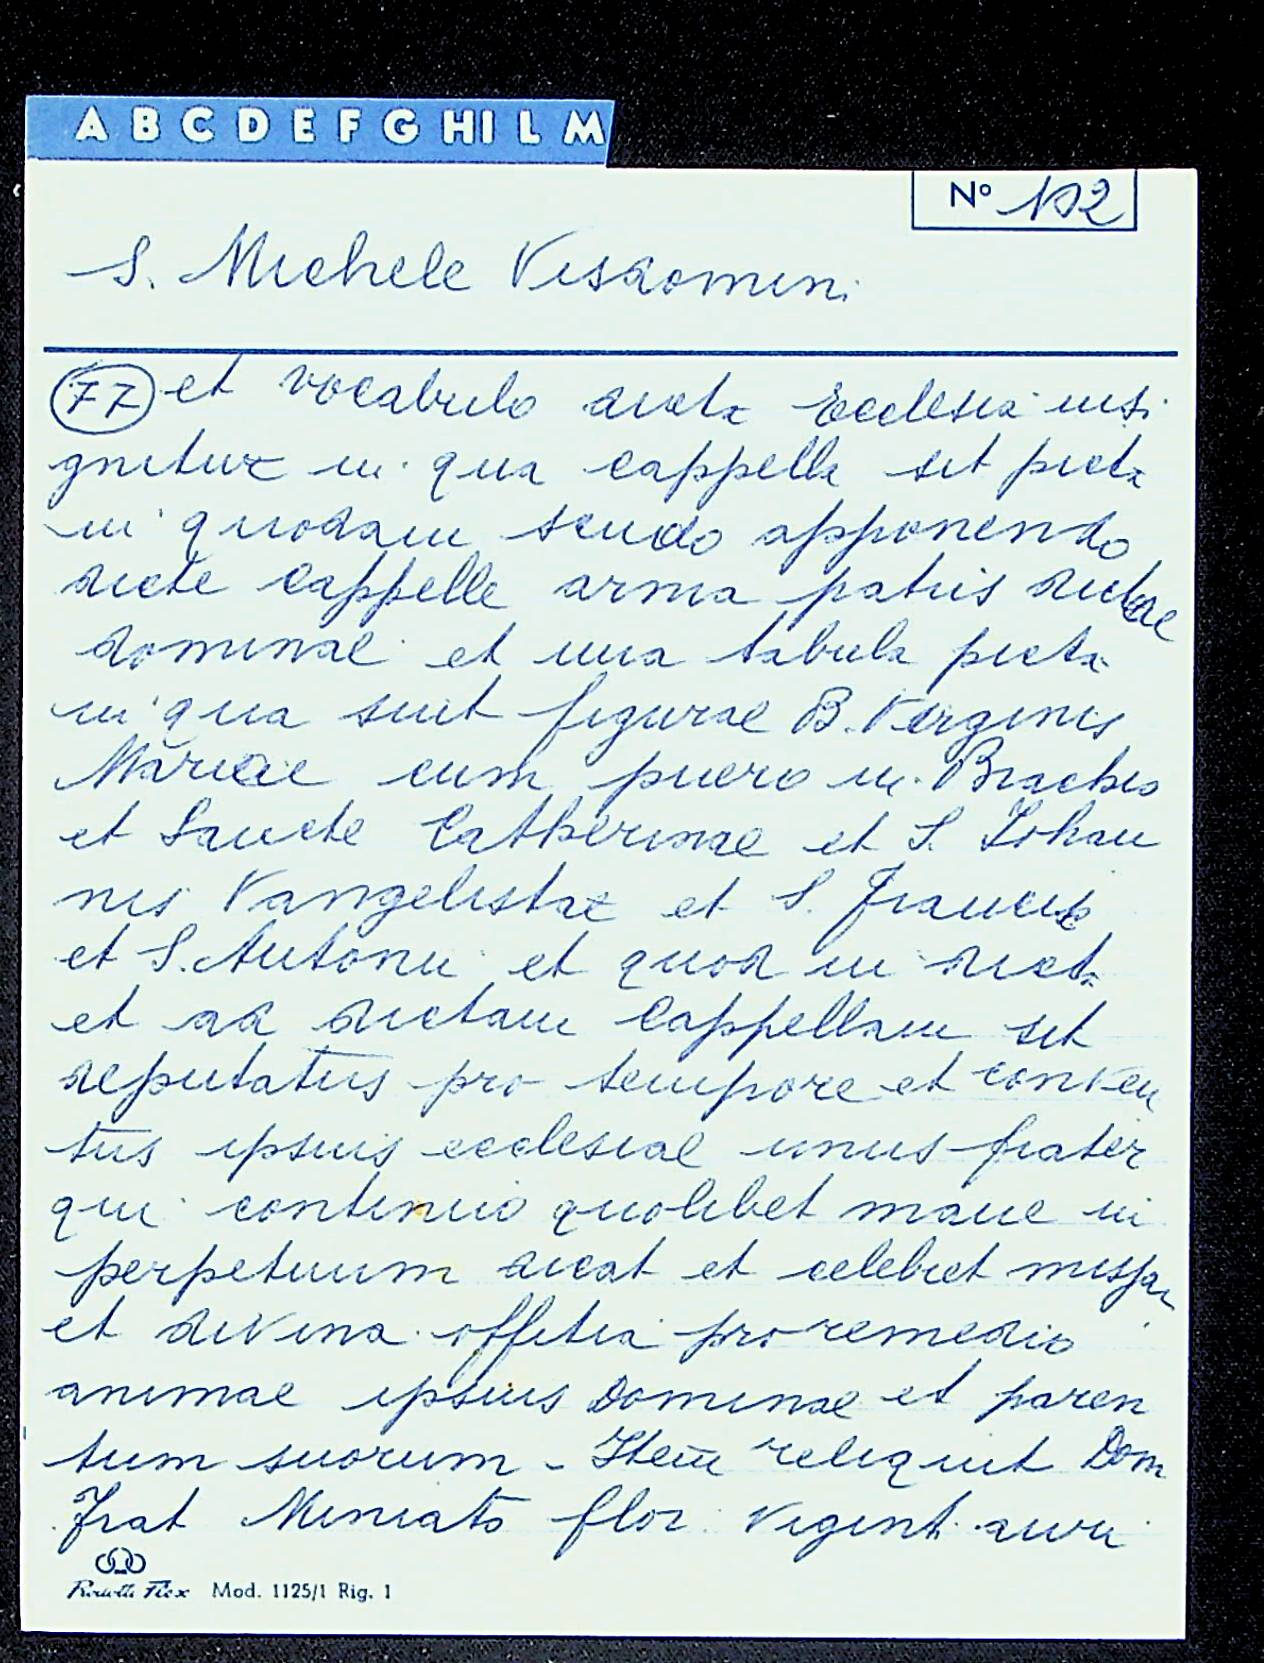 A B C D E F G HI L M
Nº 102
S. Michele Visdomini
77 et vocabulo dicta Ecclesia insi
gnitur in qua cappella sit picta
in quodam scudo apponendo
dicte cappelle arma patris dictae
dominae et una tabula picta
in qua sint figurae B. Virginis
Mariae cum puero in Brachio
et Sancte Catherinae et S. Johan
nis Vangelistae et S. Francisci
et S. Antonii et quod in dicta
et ad dictam Cappellam sit
deputatus pro tempore et conven
tus ipsius ecclesiae unus frater
qui continuo quolibet mane in
perpetuum dicat et celebret missam
et divina offitia pro remedio
animae ipsius Dominae et paren
tum suorum - Item reliquit Dom
Frat Miniato flor. vigint. auri
Mod. 1125/1 Rig. 1